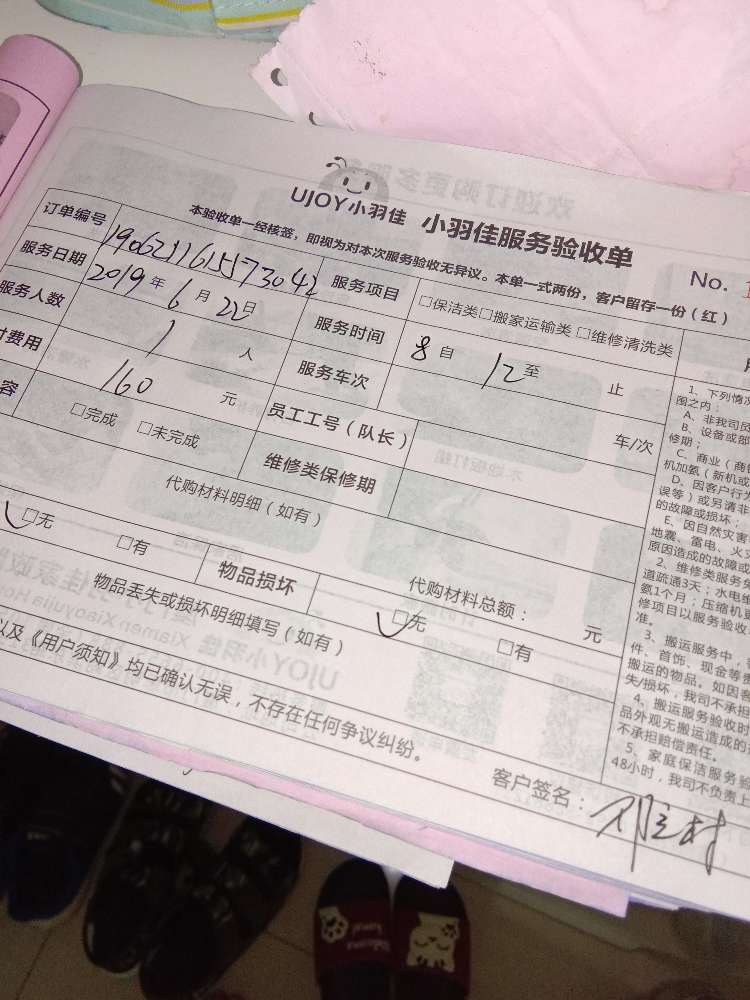 UJOY小羽佳 小羽佳服务验收单
No.
本验收单一经核签，即视为对本次服务验收无异议。本单一式两份，客户留存一份（红）
订单编号 服务项目 □保洁类□搬家运输类 □维修清洗类
服务日期 2019年6月22日 服务时间 8自 12至 止
服务人数 1人 服务车次 车/次
费用 160元 员工工号（队长）
容 □完成 □未完成 维修类保修期
代购材料明细（如有） 代购材料总额： 元
□无 □有 物品损坏 □无 □有
物品丢失或损坏明细填写（如有）
以及《用户须知》均已确认无误，不存在任何争议纠纷。
客户签名：
1、下列情况
围之内：
A、非我司员
B、设备或部
修期；
C、商业（商
机加氨（新机或
D、因客户行为
误等）或另请非
的故障或损坏；
E、因自然灾害
地震、雷电、火灾
原因造成的故障或
2、维修类服务免
道疏通3天；水电维
氨1个月；压缩机
修项目以服务验收
准。
3、搬运服务中，
件、首饰、现金等贵
搬运的物品。如因
失/损坏，我司不承担
4、搬运服务验收时
品外观无搬运造成的
不承担赔偿责任。
5、家庭保洁服务验
48小时，我司不负责上